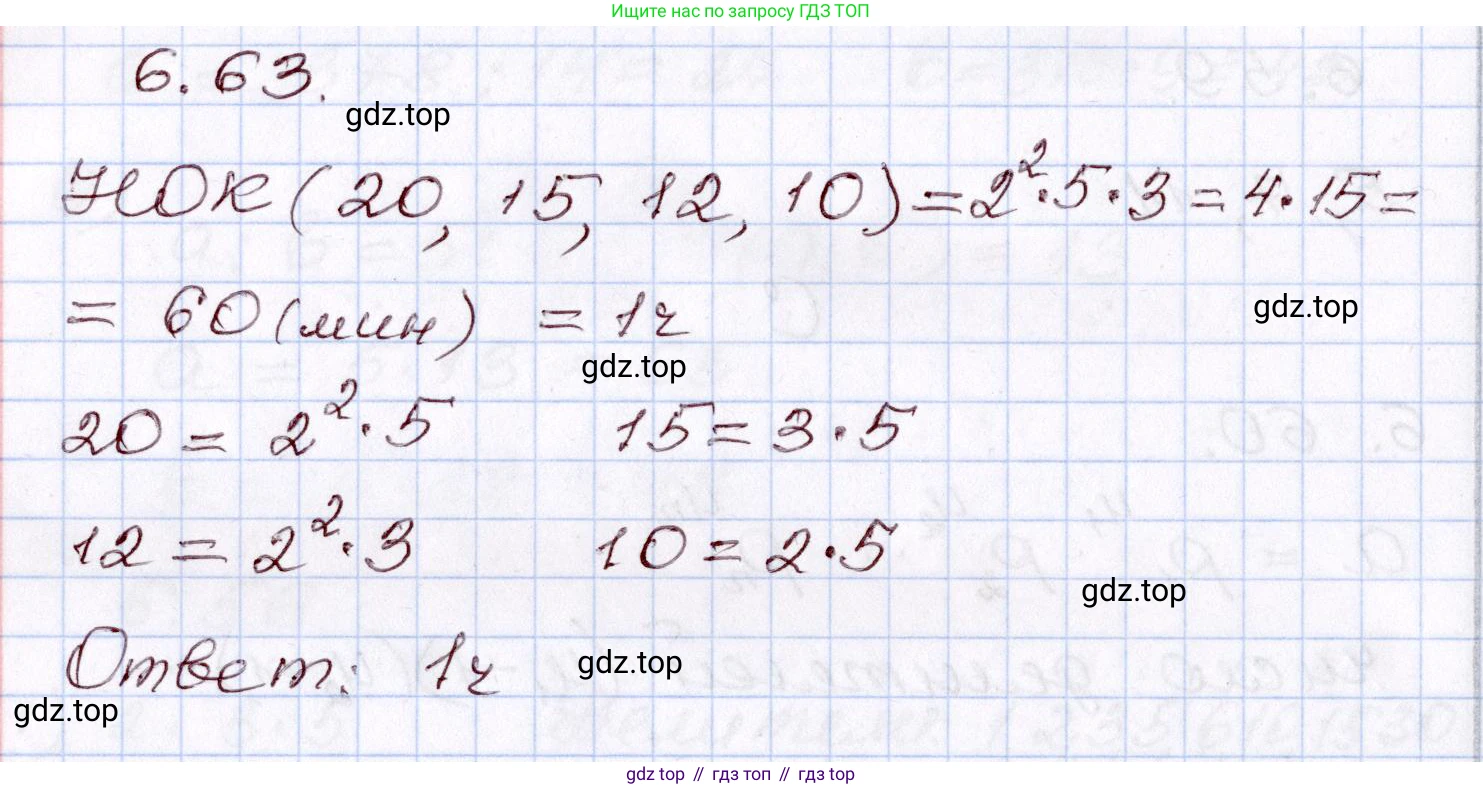 Ищите нас по запросу ГДЗ ТОП
6.63.
gdz.top
НОК (20, 15, 12, 10) = 2²·5·3 = 4·15 =
= 60 (мин) = 1ч
gdz.top
gdz.top
20 = 2²·5 15 = 3·5
12 = 2²·3 10 = 2·5
gdz.top
Ответ: 1ч
gdz.top
gdz.top
gdz top // гдз топ // гдз top